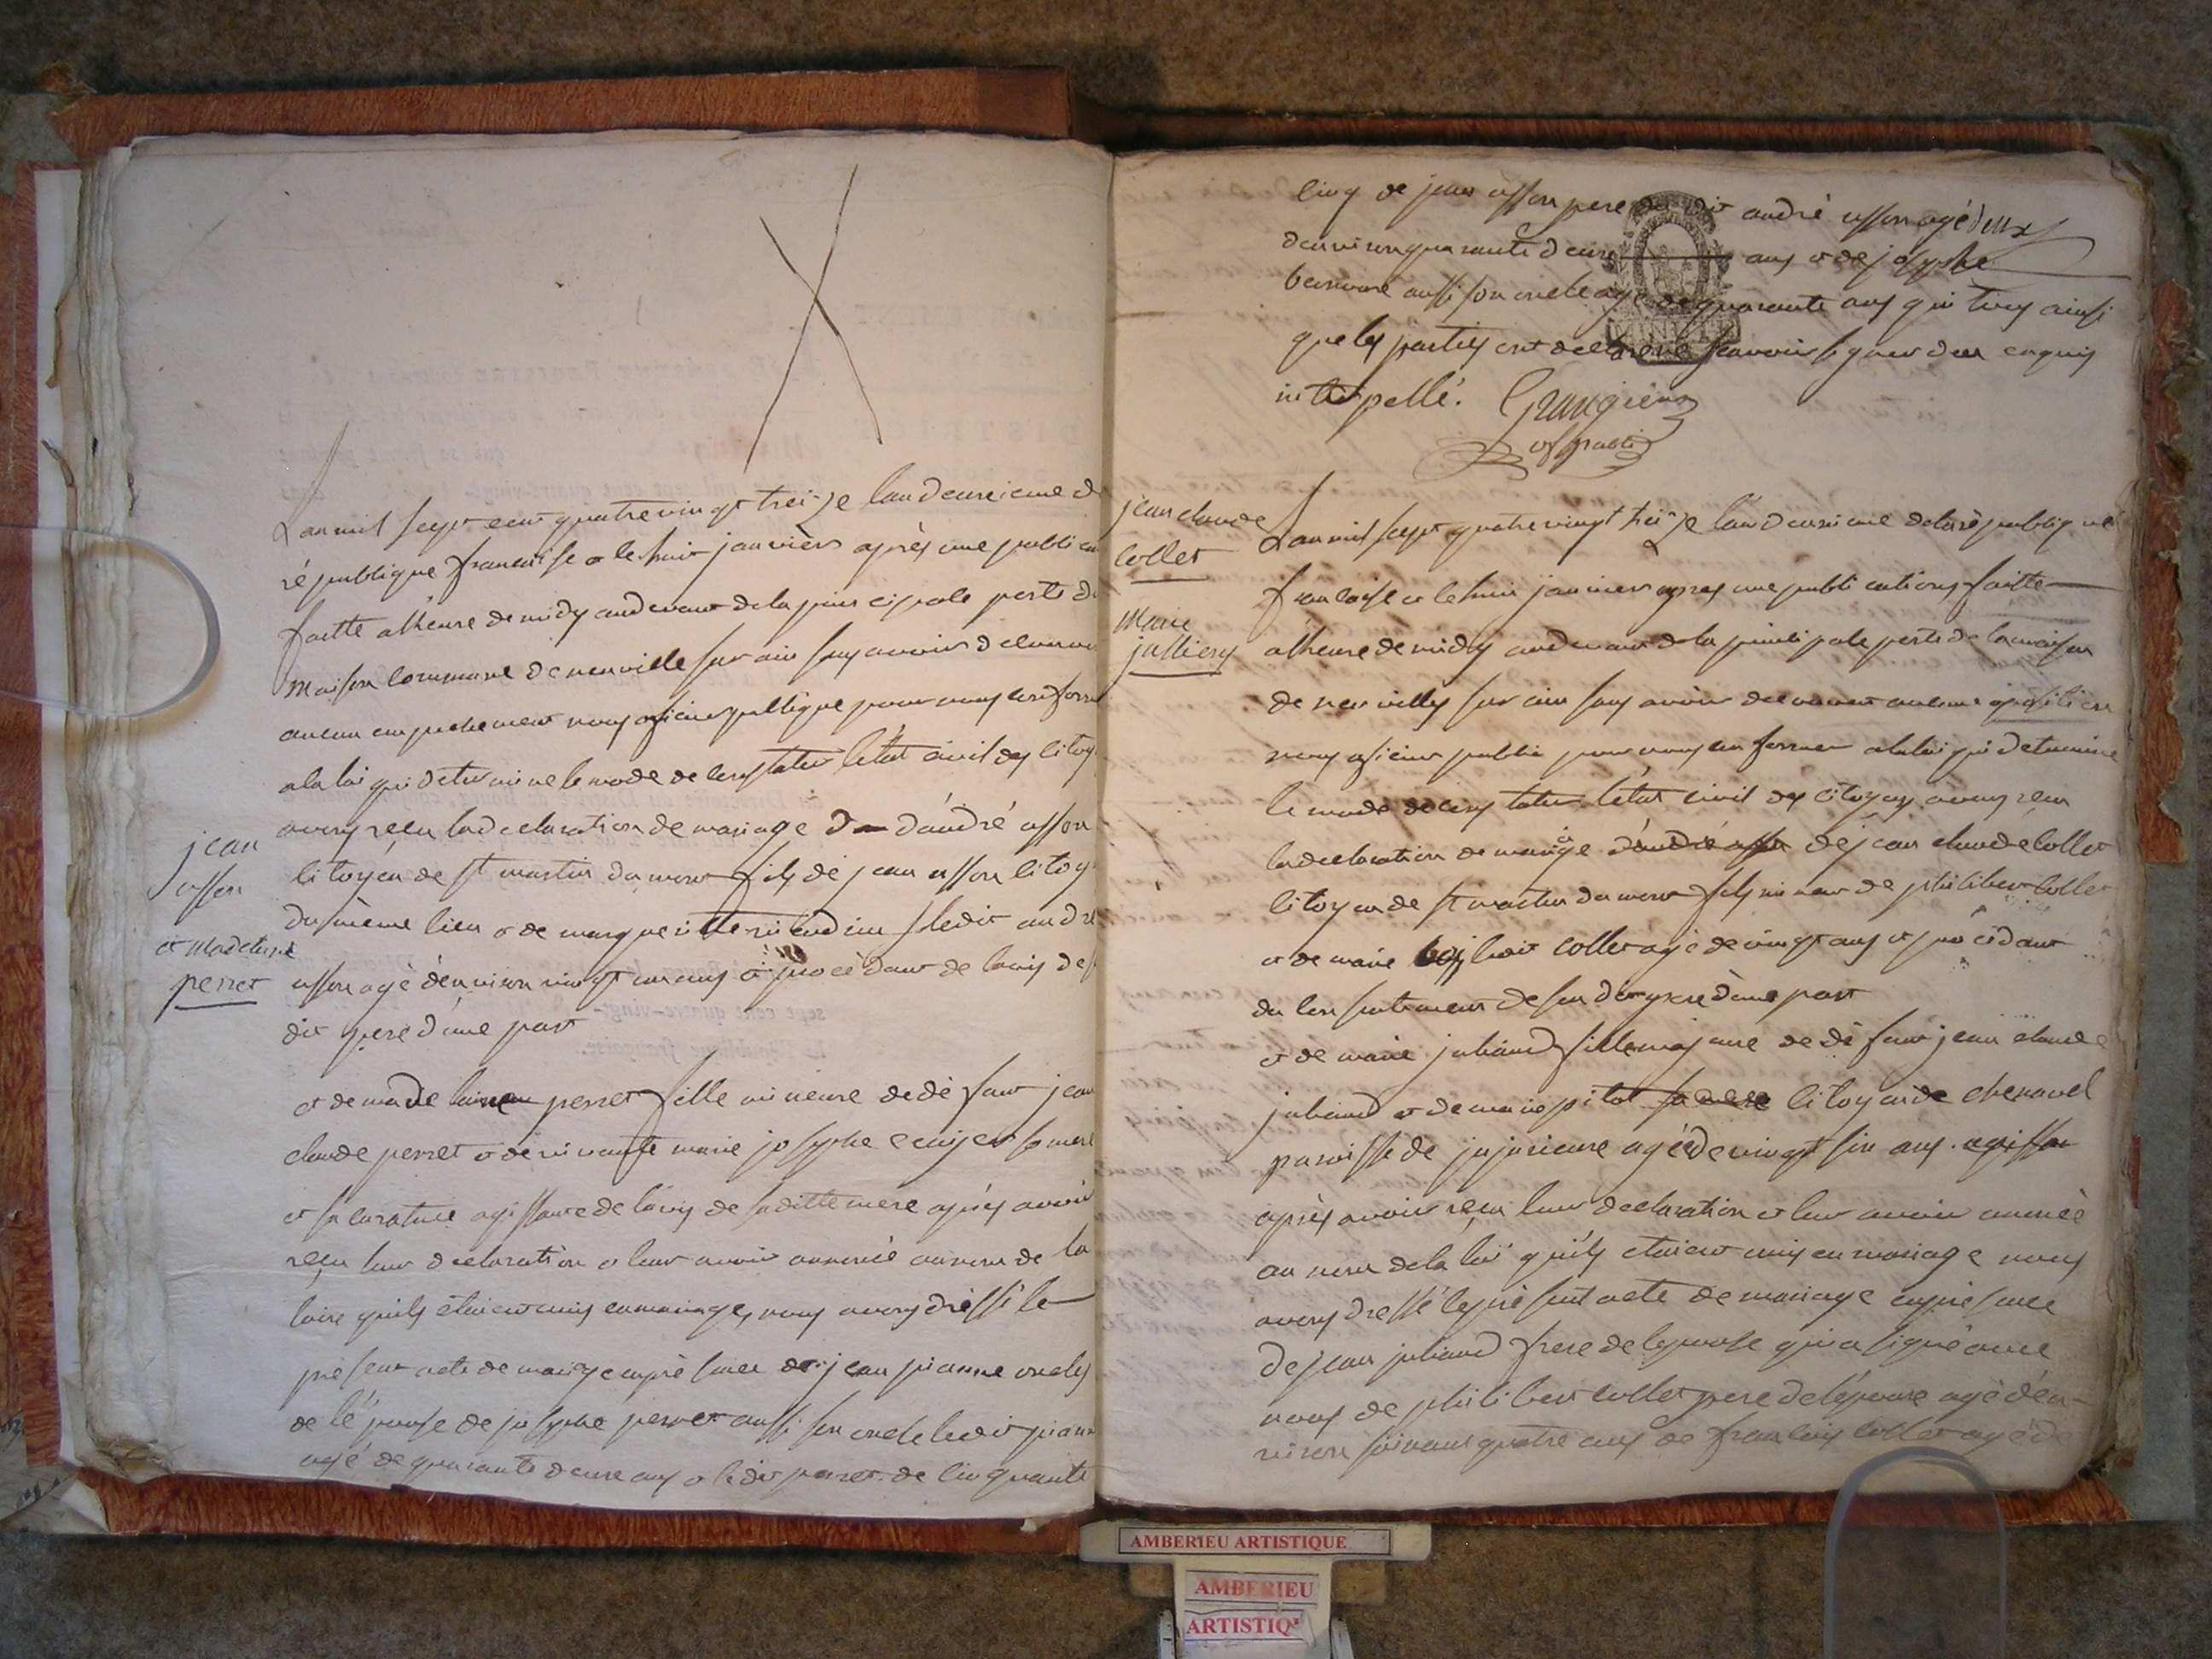 Lan mil sept cent quatre vingt treize lan deuxieme d
république francoise & le huit janviers après une publica
faitte alheure de midy audevant de la principale porte de
maison Commune de neuville sur ain sans avoir decouver
aucun enpechement nous oficier publique pour nous conforme
ala loi qui determine le mode de constater létat civil des citoy
avons reçu la declaration de mariage d'andré usson
citoyen de st martin du mont fils de jean usson citoy
du même lieu & de margueritte ledit andre
usson agé denviron vingt un ans & procédant de lavis de s
dit pere dune part
& de madelaine perret fille mineure de défunt jean
claude perret & de vivante marie josephe sa mere
& sa curatrice agissante de lavis de saditte mere après avoir
reçu leur declaration & leur avoir annoncé au nom de la
loix quils étaient unis en mariage, nous avons dréssé le
présent acte de mariage en présence de jean pianne oncles
de l'épouse de josephe perret aussi son oncle ledit piann
agé de quarante deux ans & ledit perret de cinquante
jean
usson
et madelaine
perret
cinq de jean usson pere du dit andré usson agé deux
denviron quarante deux ans & de josephe
aussi son oncle agé de quarante ans qui tous ainsi
que les parties ont declaré ne scavoir signer de ce enquis
interpellé. Grangier
of public
jean claude
collet
Marie
Lan mil sept quatre vingt treize lan deuxieme dela république
francoise & le huit janviers apres une publications faitte
alheure de midy audevant de la principale porte de la maison
de neuville sur ain sans avoir decouvert aucune opposition
nous oficier public pour nous conformer ala loi qui determine
le mode de constater létat civil des citoyens avons reçu
la declaration de mariage d'andré usson de jean claude collet
citoyen de st martin du mont fils mineur de philibert collet
& de marie collet agé de vingt ans & procédant
du consentement de son dit pere dune part
& de marie juliand fille majeure de défunt jean claude
juliand & de marie pitot sa mere citoyen de chenavel
paroisse de jujurieux agée de vingt six ans. agissan
après avoir reçu leur declaration & leur avoir annoncé
au nom de la loi quils étaient unis en mariage nous
avons dressé le présent acte de mariage en présence
de jean juliand frere de lepouse qui a signé avec
nous de philibert collet pere de lépoux agé d'en-
viron soixante quatre ans de francois collet agé de
AMBERIEU ARTISTIQUE
AMBERIEU
ARTISTIQ